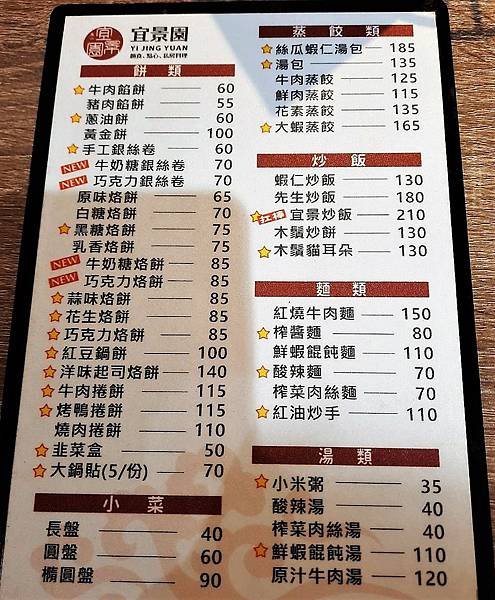 宜景園
YI JING YUAN
麵食、點心、私房料理
餅類
牛肉餡餅 60
豬肉餡餅 55
蔥油餅 60
黃金餅 100
手工銀絲卷 60
NEW 牛奶糖銀絲卷 70
NEW 巧克力銀絲卷 70
原味烙餅 65
白糖烙餅 70
黑糖烙餅 75
乳香烙餅 75
NEW 牛奶糖烙餅 85
NEW 巧克力烙餅 85
蒜味烙餅 85
花生烙餅 85
巧克力烙餅 85
紅豆鍋餅 100
洋味起司烙餅 140
牛肉捲餅 115
烤鴨捲餅 115
燒肉捲餅 110
韭菜盒 50
大鍋貼(5/份) 70
小菜
長盤 40
圓盤 60
橢圓盤 90
蒸餃類
絲瓜蝦仁湯包 185
湯包 135
牛肉蒸餃 125
鮮肉蒸餃 115
花素蒸餃 135
大蝦蒸餃 165
炒飯
蝦仁炒飯 130
先生炒飯 180
宜景炒飯 210
木鬚炒餅 130
木鬚貓耳朵 130
麵類
紅燒牛肉麵 150
榨醬麵 80
鮮蝦餛飩麵 110
酸辣麵 70
榨菜肉絲麵 70
紅油炒手 110
湯類
小米粥 35
酸辣湯 40
榨菜肉絲湯 40
鮮蝦餛飩湯 110
原汁牛肉湯 120